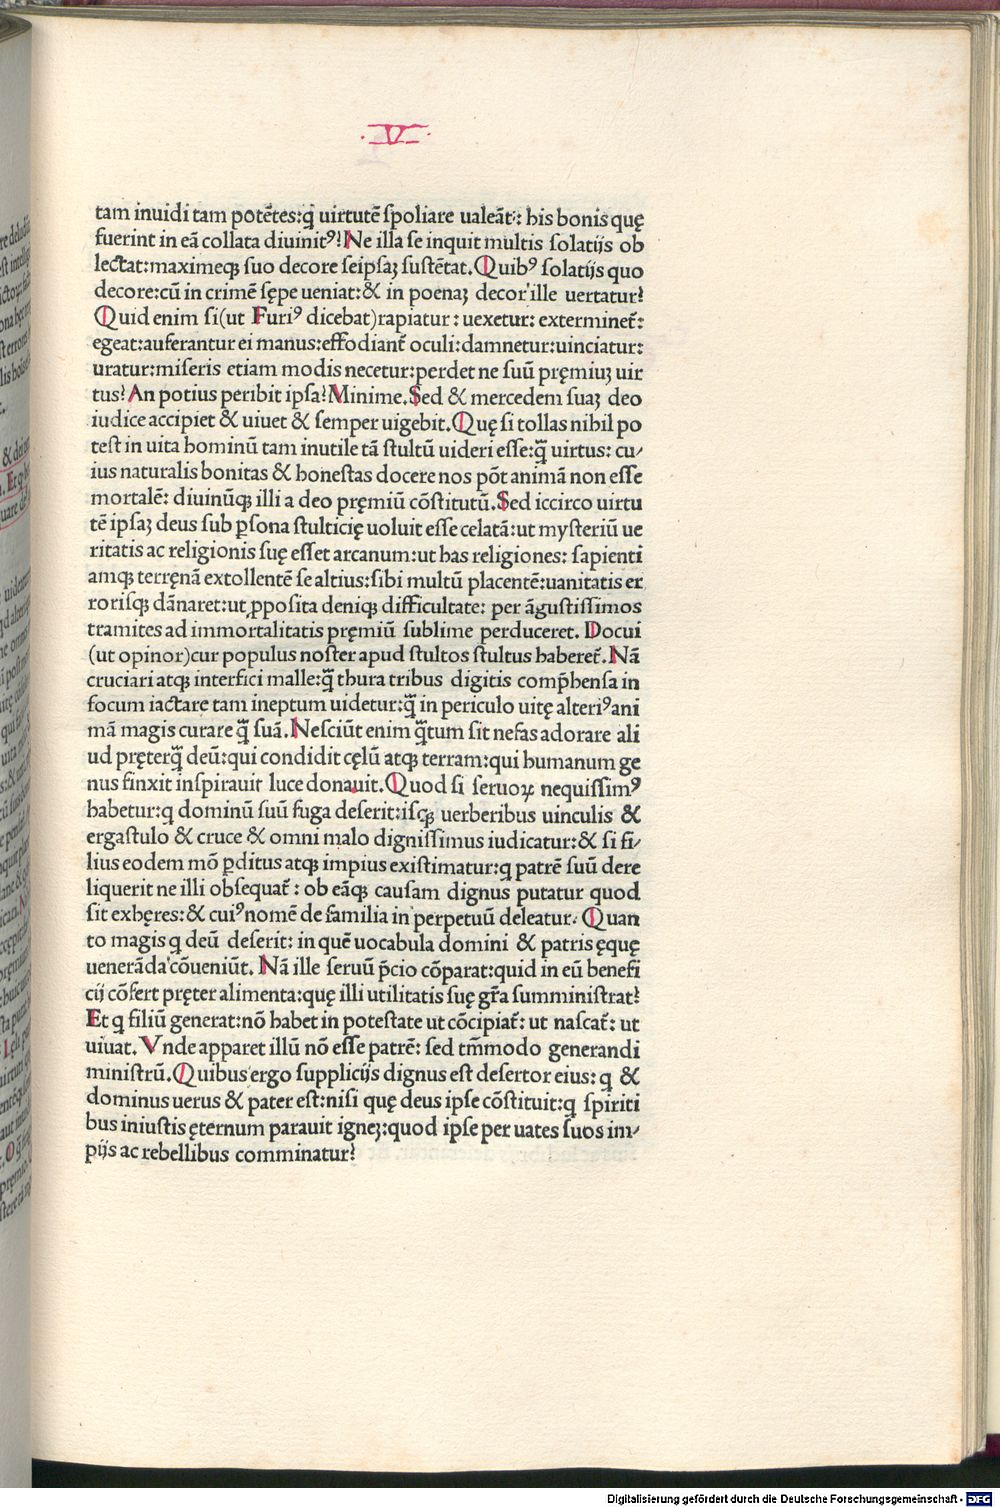 · V ·
tam inuidi tam potētes:q̄ uirtutē ſpoliare ualeāt: his bonis quę
fuerint in eā collata diuinitꝰ? Ne illa ſe inquit multis ſolatijs ob
lectat:maximeqꝫ ſuo decore ſeipſaꝫ ſuſtētat. Quibꝰ ſolatijs quo
decore:cū in crimē ſępe ueniat:& in poenaꝫ decor ille uertatur?
Quid enim ſi(ut Furiꝰ dicebat)rapiatur: uexetur: extermineť:
egeat:auferantur ei manus:effodianť oculi:damnetur:uinciatur:
uratur:miſeris etiam modis necetur:perdet ne ſuū pręmiuꝫ uir
tus? An potius peribit ipſa? Minime. Sed & mercedem ſuaꝫ deo
iudice accipiet & uiuet & ſemper uigebit. Quę ſi tollas nihil po
teſt in uita hominū tam inutile tā ſtultū uideri eſſe:q̄ uirtus: cu/
ius naturalis bonitas & honeſtas docere nos pōt animā non eſſe
mortalē: diuinūqꝫ illi a deo pręmiū cōſtitutū. Sed iccirco uirtu
tē ipſaꝫ deus ſub ꝑſona ſtulticię uoluit eſſe celatā:ut myſteriū ue
ritatis ac religionis ſuę eſſet arcanum:ut has religiones: ſapienti
amqꝫ terręnā extollentē ſe altius:ſibi multū placentē:uanitatis er
roriſqꝫ dānaret:ut ꝓpoſita deniqꝫ difficultate: per āguſtiſſimos
tramites ad immortalitatis pręmiū ſublime perduceret. Docui
(ut opinor)cur populus noſter apud ſtultos ſtultus habereť. Nā
cruciari atqꝫ interfici malle:q̄ thura tribus digitis comp̄henſa in
focum iactare tam ineptum uidetur:q̄ in periculo uitę alteriꝰ ani
mā magis curare q̄ ſuā. Neſciūt enim q̄tum ſit nefas adorare ali
ud pręterq̄ deū:qui condidit cęlū atqꝫ terram:qui humanum ge
nus finxit inſpirauit luce donauit. Quod ſi ſeruoꝝ nequiſſimꝰ
habetur:q dominū ſuū fuga deſerit:iſqꝫ uerberibus uinculis &
ergaſtulo & cruce & omni malo digniſſimus iudicatur:& ſi fi/
lius eodem mō ꝑditus atqꝫ impius exiſtimatur:q patrē ſuū dere
liquerit ne illi obſequať: ob eāqꝫ cauſam dignus putatur quod
ſit exhęres:& cuiꝰ nomē de familia in perpetuū deleatur. Quan
to magis q deū deſerit: in quē uocabula domini & patris ęquę
uenerāda cōueniūt. Nā ille ſeruū p̄cio cōparat:quid in eū benefi
cij cōfert pręter alimenta:quę illi utilitatis ſuę gr̄a ſumminiſtrat?
Et q filiū generat:nō habet in poteſtate ut cōcipiať: ut naſcať: ut
uiuat. Vnde apparet illū nō eſſe patrē: ſed tm̄modo generandi
miniſtrū. Quibus ergo ſupplicijs dignus eſt deſertor eius: q &
dominus uerus & pater eſt:niſi quę deus ipſe cōſtituit:q ſpiriti
bus iniuſtis ęternum parauit igneꝫ:quod ipſe per uates ſuos im/
pijs ac rebellibus comminatur?
Digitalisierung gefördert durch die Deutsche Forschungsgemeinschaft - DFG